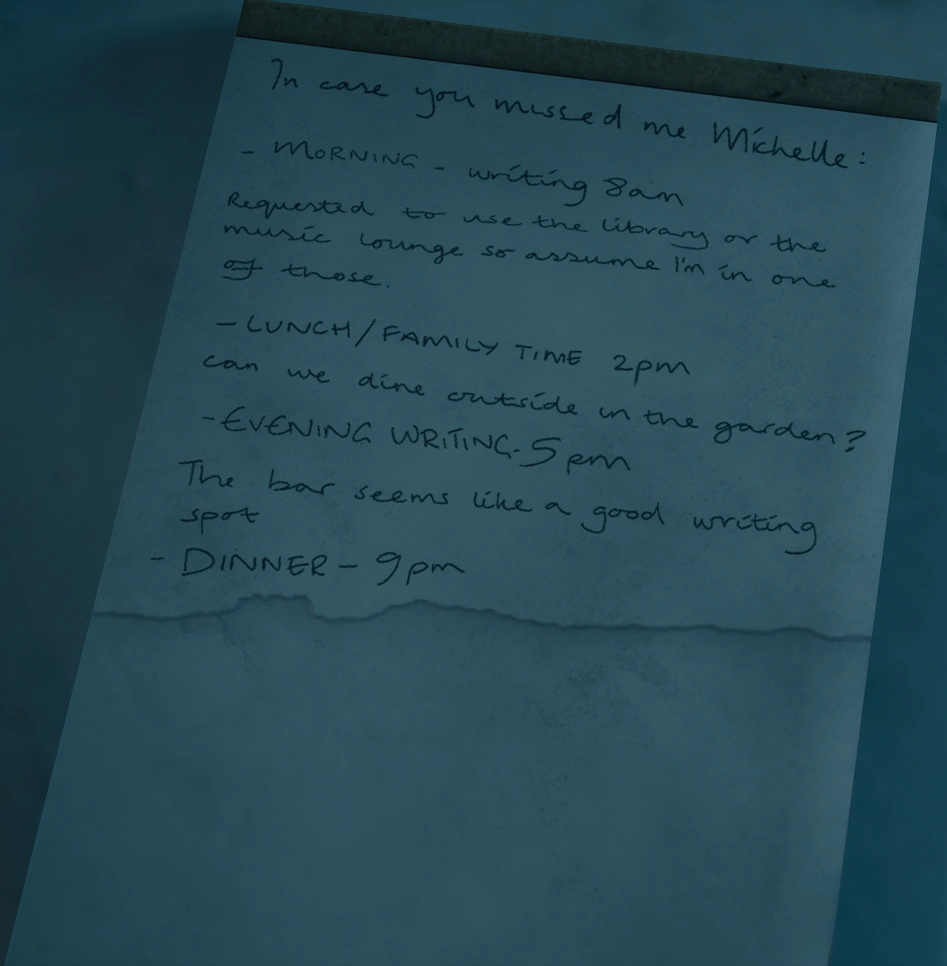 In case you missed me Michelle:
- MORNING - writing 8am
Requested to use the library or the
music lounge so assume I'm in one
of those.
- LUNCH/FAMILY TIME 2pm
can we dine outside in the garden?
- EVENING WRITING- 5pm
The bar seems like a good writing
spot
- DINNER - 9pm